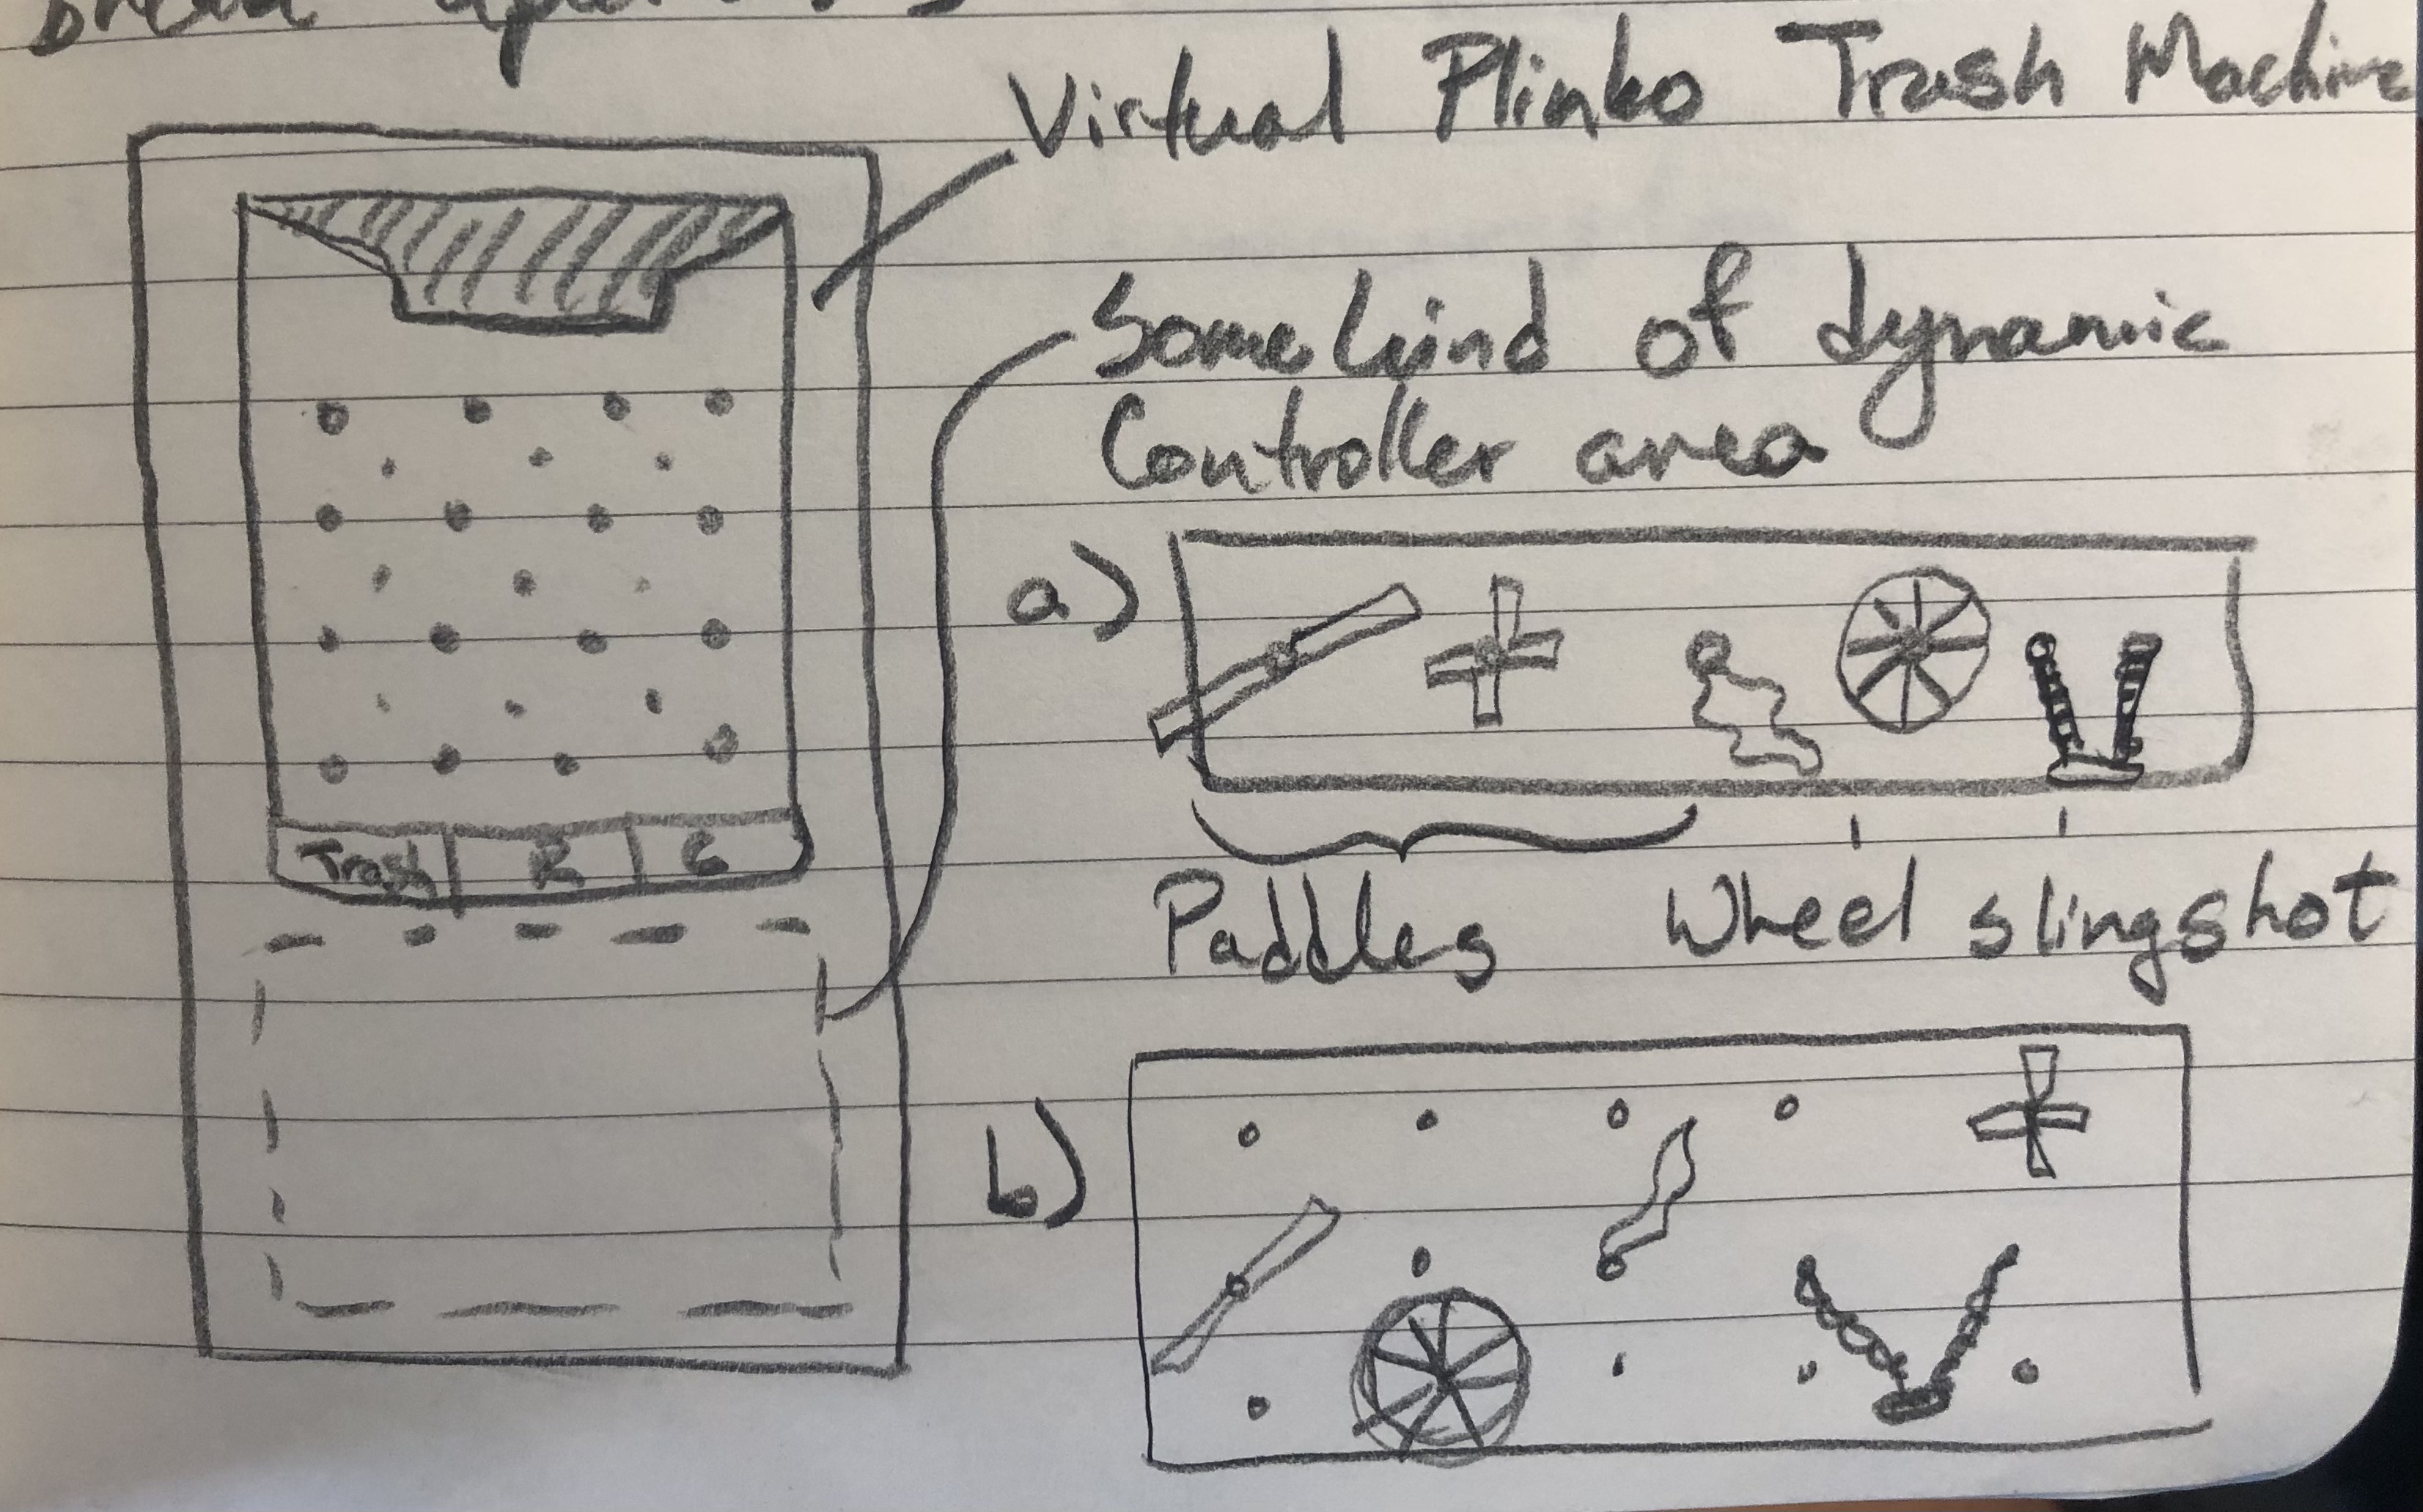 Virtual Plinko Trash Machine
Some kind of dynamic
Controller area
a)
Trash R C
Paddles Wheel slingshot
b)